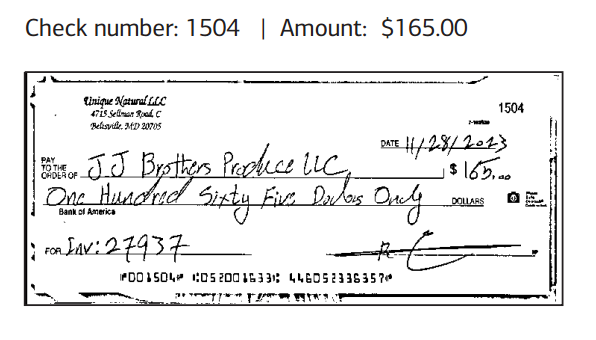 Check number: 1504 | Amount: $165.00
Unique Natural LLC
4715 Sellman Road, C
Beltsville, MD 20705
1504
DATE 11/28/2023
PAY TO THE ORDER OF JJ Brothers Produce LLC $165.00
One Hundred Sixty Five Dollars Only DOLLARS
Bank of America
FOR Inv: 27937
⑈001504⑈ ⑆052001633⑆ 446052336357⑈